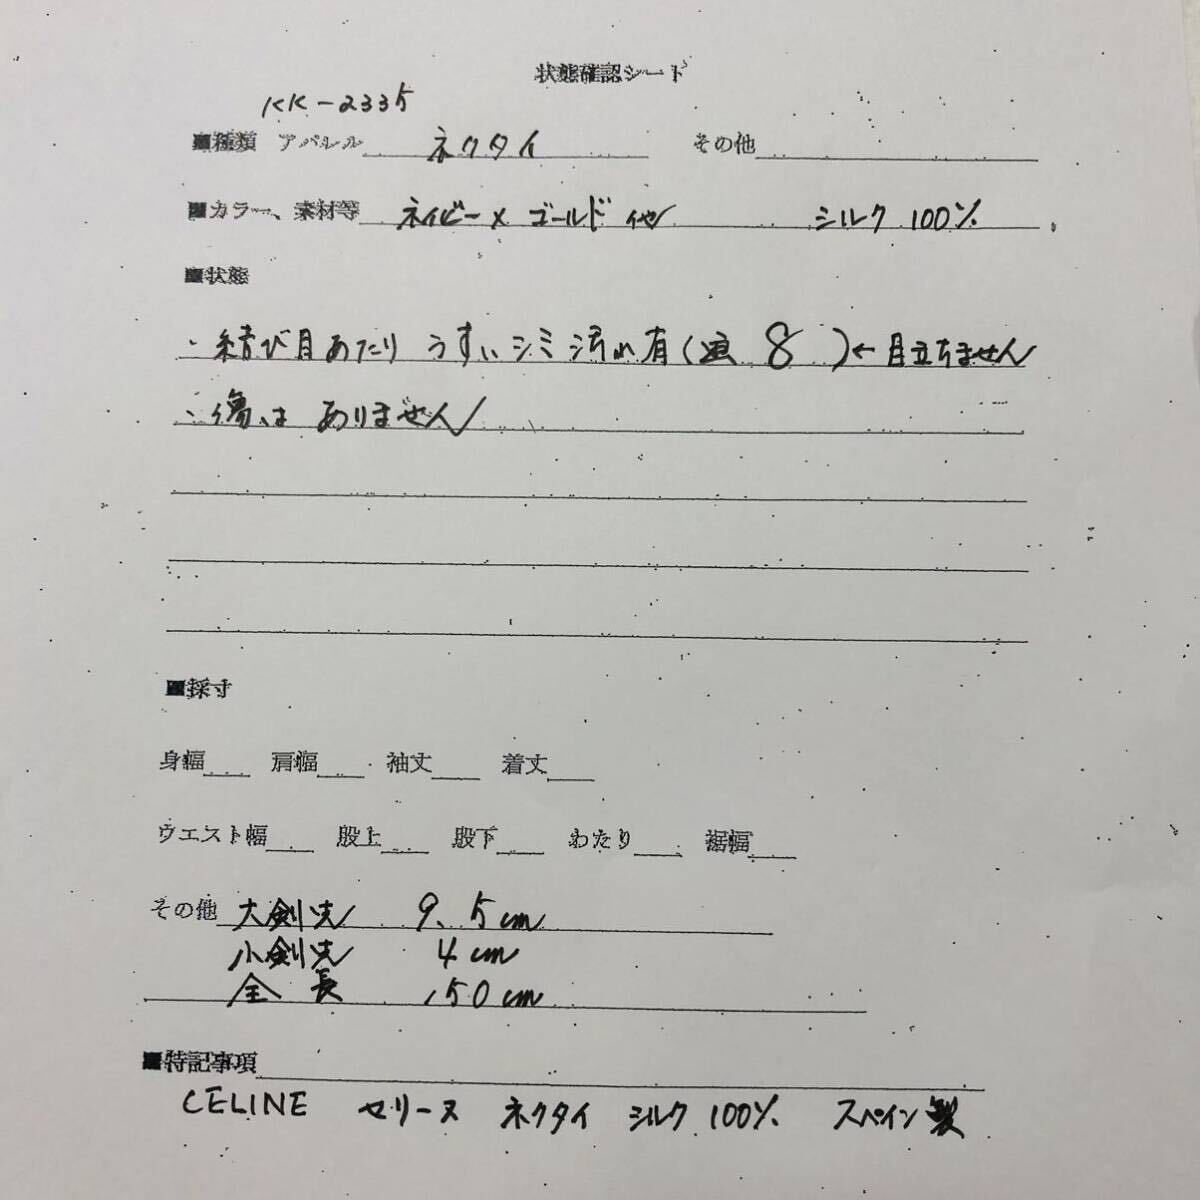 状態確認シート
KK-2335
■種類 アパレル ネクタイ その他
■カラー、素材等 ネイビー×ゴールド 他 シルク 100%
■状態
・結び目あたり うすいシミ汚れ有(画 8 )←目立ちません
・傷は ありません
■採寸
身幅 肩幅 袖丈 着丈
ウエスト幅 股上 股下 わたり 裾幅
その他 大剣先 9.5cm
小剣先 4cm
全長 150cm
■特記事項
CELINE セリーヌ ネクタイ シルク 100% スペイン製